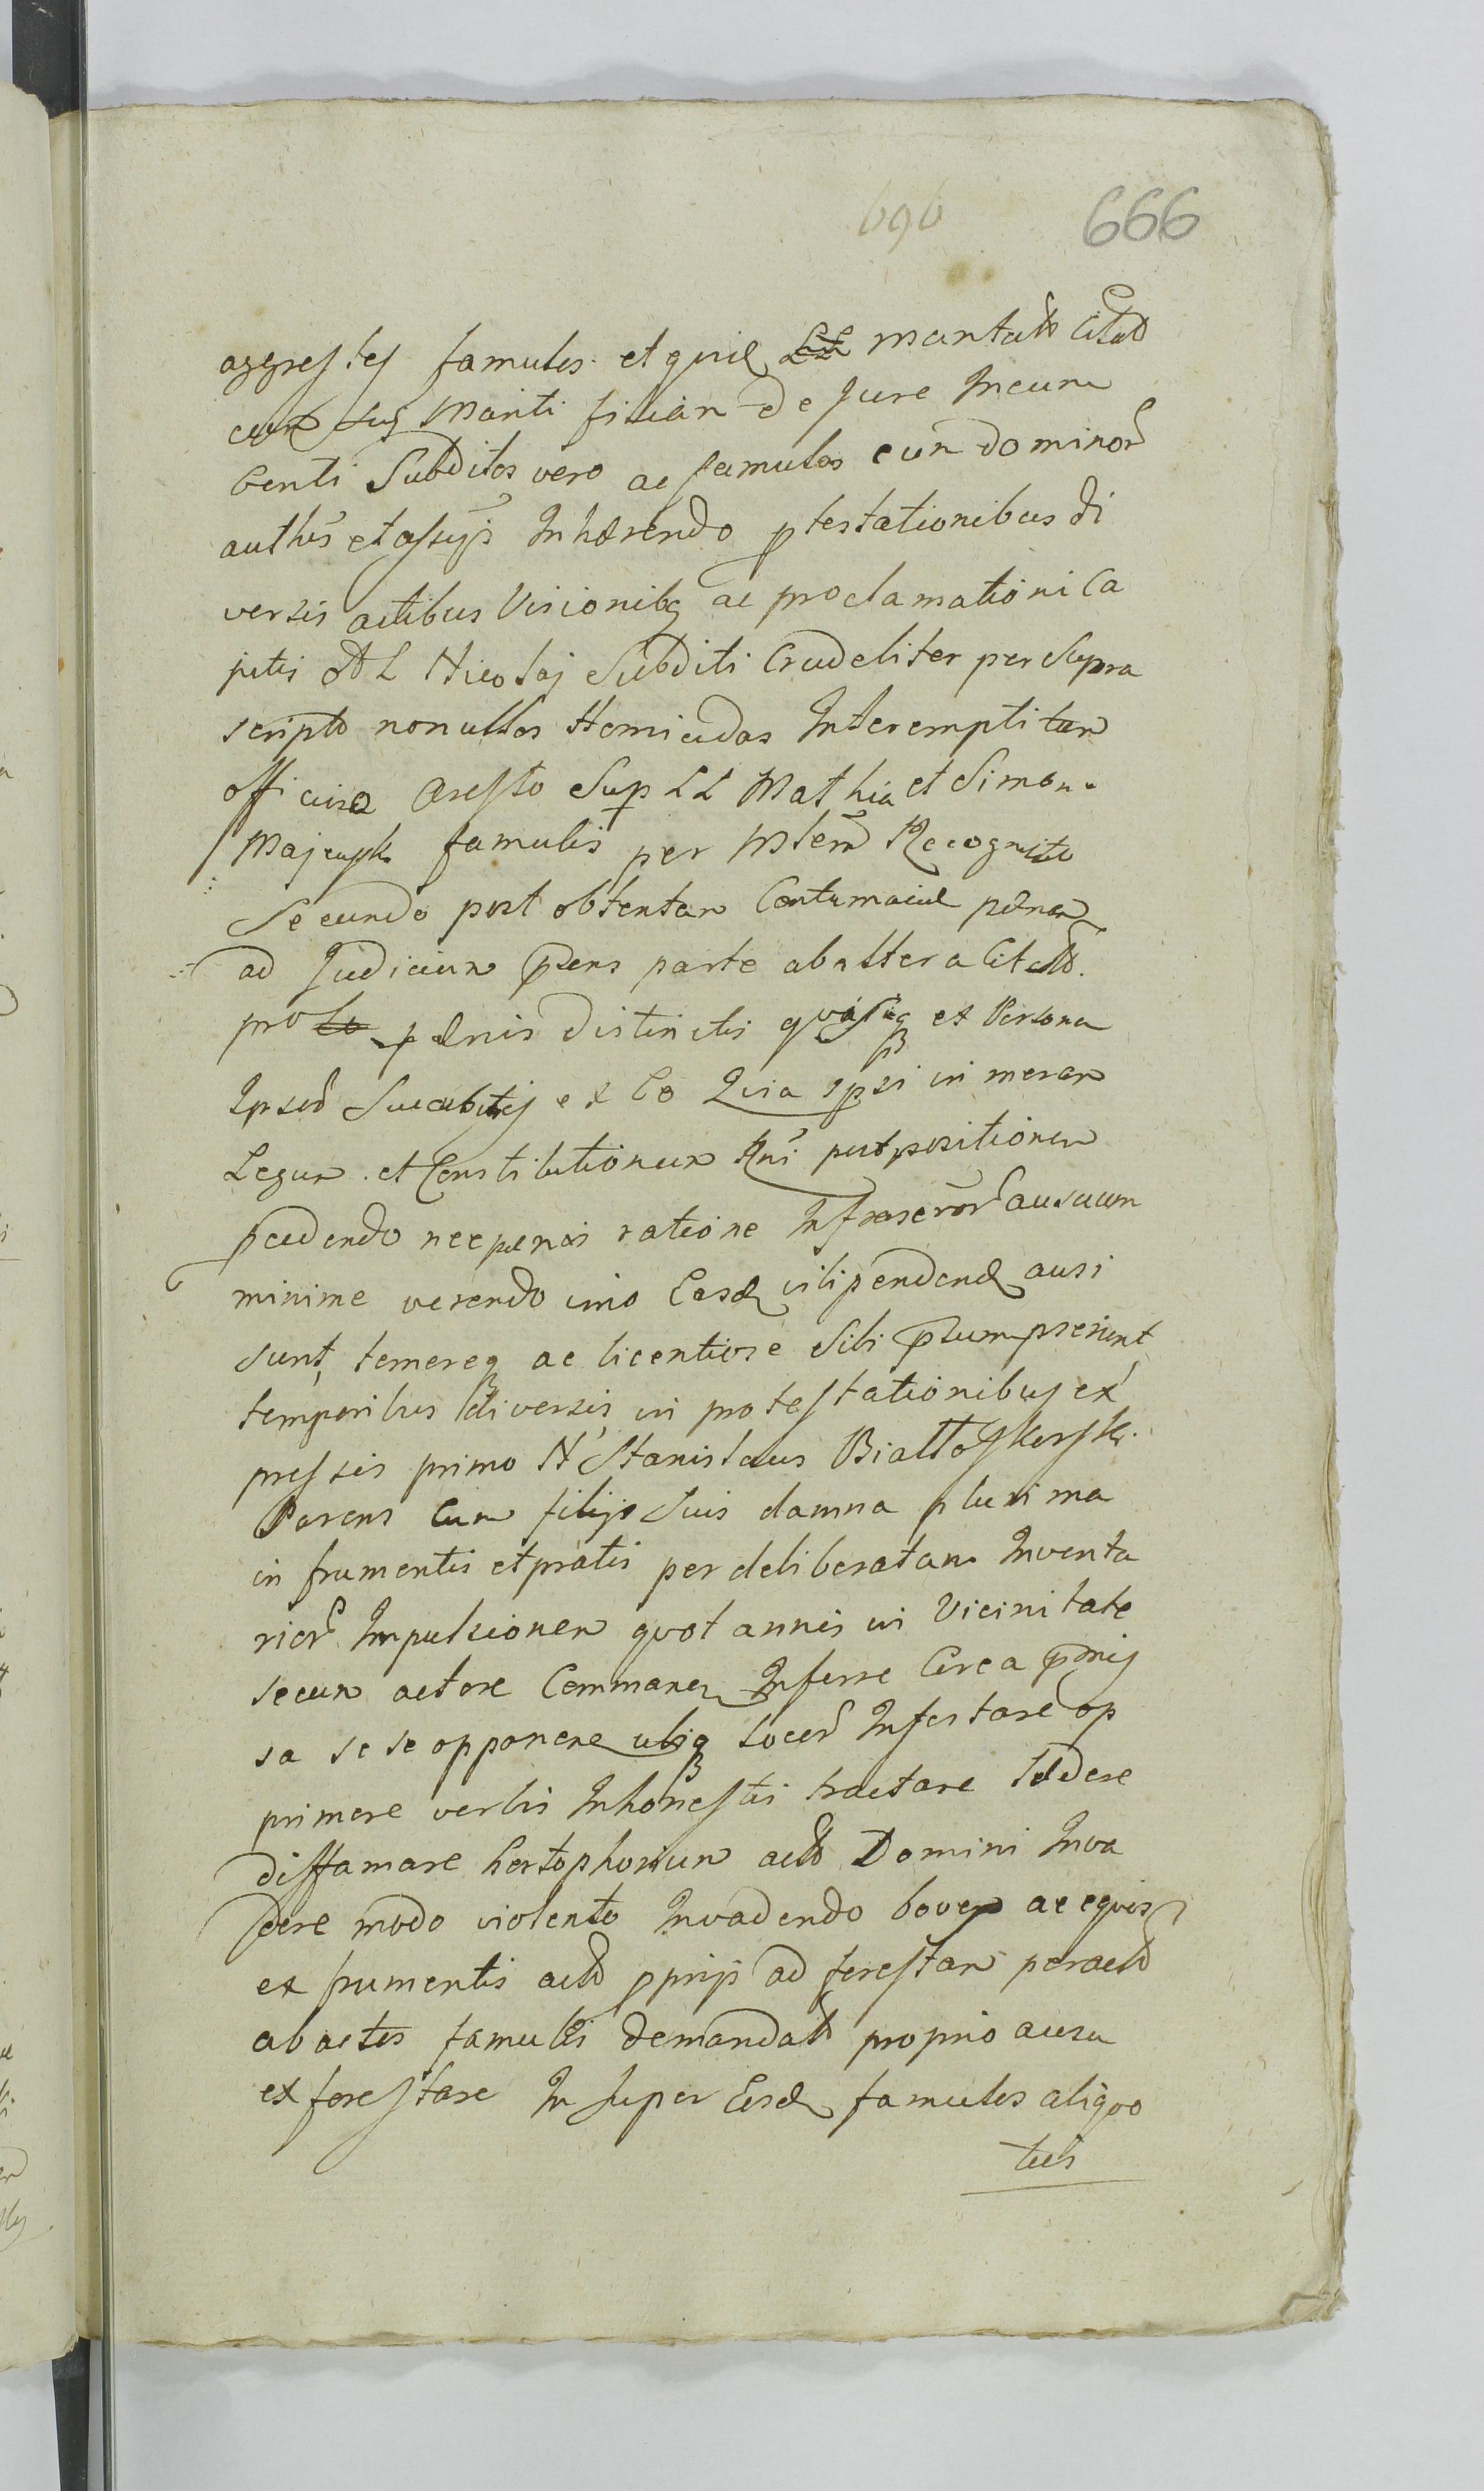 696 666
agrestes famulos et quid mantatt Citatt
cum suis Mariti filiam de Jure Incum
benti Subditos vero ac famulos cum dominor
auths et assijs Inhærendo ptestationibus di
versis actibus Visionibq ac proclamationi Ca
pitis Nicolaj Subditi Crudeliter per Supra
scripto nonullos Homicidas Interempti tam
officioso Aresto Sup LL Mathia et Simon
famulis per Mstem Recognito
Secundo post obtentam Contumaciæ pænam
ad Judicium pens parte ab altera Citatt.
pro pænis distinctis et Persona
Ipsor Succubitis ex Eo Quia ipsi in meram
Legum et Constitutionum Rni postpositionem
pcedendo nec pænas ratione Infrascror ausuum
minime verendo imo Easd vilipendend ausi
sunt, temereq ac licentiose Sibi psumpserunt
temporibus diversis in protestationibus ex
pressis primo N Stanislaus Białłoskorski
Parens Cum filijs Suis damna plurima
in frumentis et pratis per deliberatam Inventa
rior Impulsionem quot annis in Vicinitate
secum actore Commanen Inferre Circa pmis
sa se se opponere ubiq locor Infestare op
primere verbis Inhonestis tractare lædere
diffamare hortophorium actt Domini Inva
dere modo violento Invadendo boves ac equos
ex frumentis actt pprijs ad forestam per actt
abactos famulis demandatt proprio ausu
exforestare Insuper Eosd famulos aliquo
ties